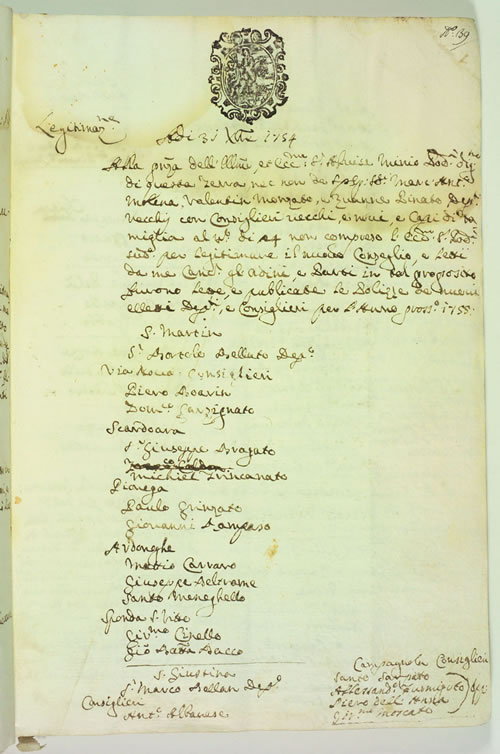 N.º 139
Legitimaz.ne
Adi 31 Xbre 1754
Alla pnza dell'Illmo, et ecc.mo S.r Alvise Minio Pod.à
di questa Terra nec non de Sp. Marc' Ant.o
Molena, Valentin Monzato, e Zuanne Binato Dep.ti
vecchij con Consiglieri vecchi, e novi, e Capi di fa
miglia al n.º di 24 non compreso l'ecc.mo S.r Pod.à
sud.º per legitimare il nuovo Conseglio, e Letti
da me Canc.r gl'ordini, e Parti in tal proposito
furono lette, e publicate le Polizze de nuovi
eletti Dep.ti, e Consiglieri per l'Anno pross.º 1755:
S. Martin
S.r Bortolo Belluto Dep.º
Via Consiglieri
Piero Boarin
Dom.co
Scardoara
S.r Giuseppe Bragato
Michiel Trincanato
Pionega
Paulo Grinzato
Giovanni
Ardonghe
Mattio Carraro
Giuseppe Beltrame
Santo Meneghello
Sponda S. Vito
Gir.mo Cipello
Gio Batta Bacco
S. Giustina
S.r Marco Bellan Dep.º
Consiglieri
Ant.º Albanese
Campagnola Consiglieri
Santo
Alessand.º
Piero dell'
Gir.mo Moscato